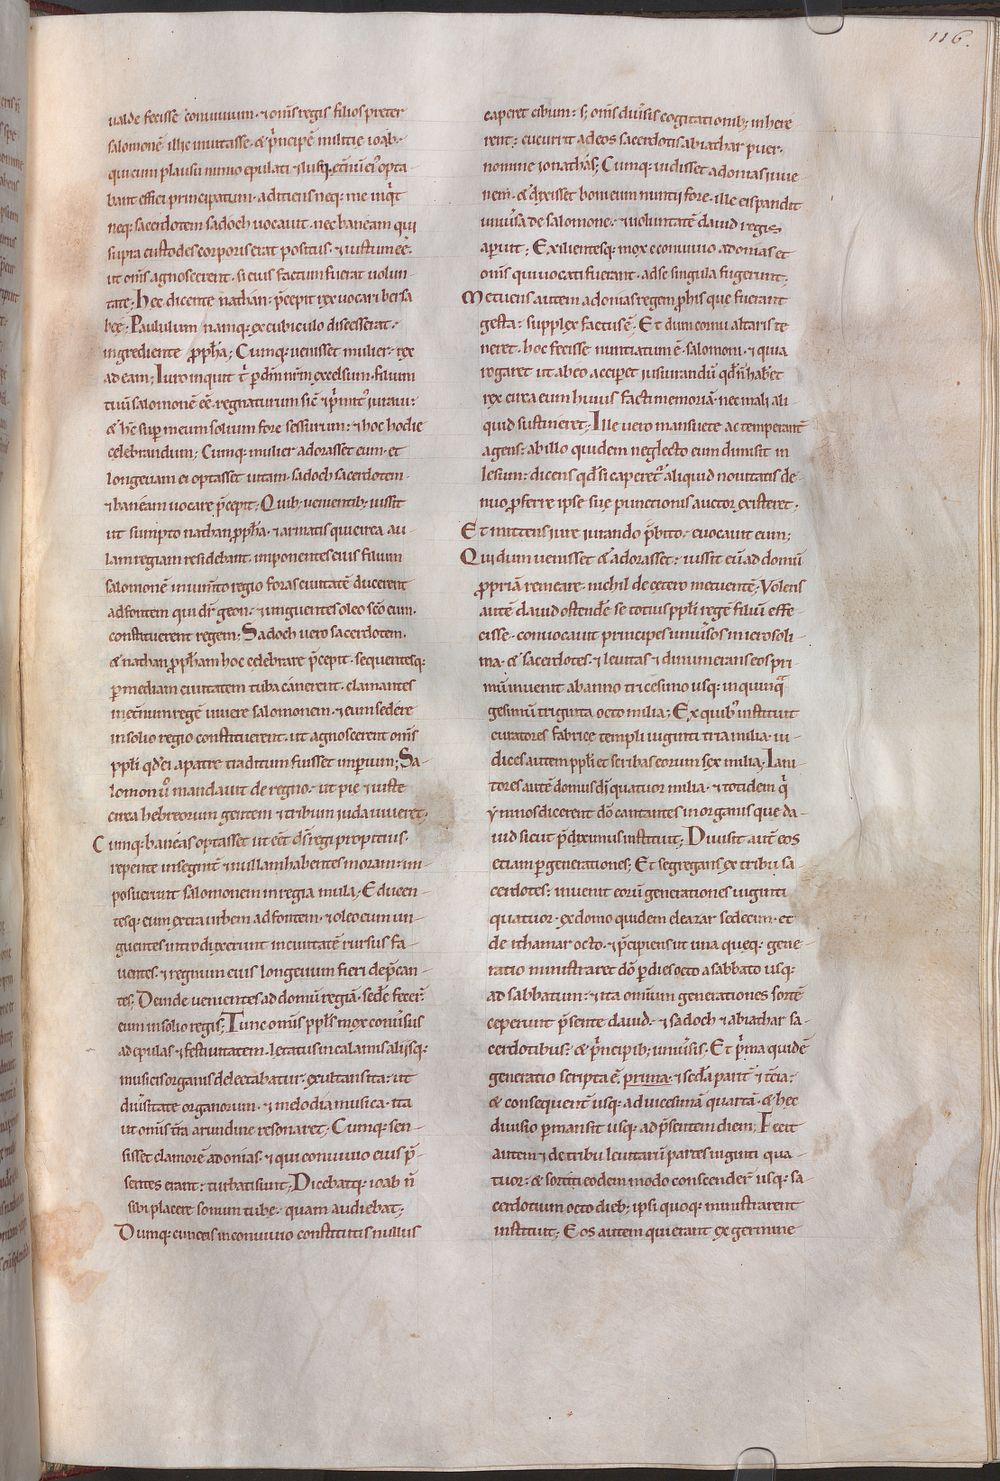 116.
ualde fecisse conuiuium· ⁊ om̄s regis filios preter
salomonē illic inuitasse· & p̄ncipē militie ioab·
qui cum plausu nimio epulati
bant effici principatum· adiciens neq: me
neq: sacerdotem sadoch uocauit· nec baneam qui
supra custodes corporis erat positus· ⁊ iustum eē·
ut om̄s agnoscerent· si eius factum fuerat uolun
tate; Hec dicente nathan· p̄cepit rex uocari bersa
bee; Paululum namq: ex cubiculo discesserat·
ingrediente ꝓph̄a; Cumq: uenisset mulier· rex
ad eam; Iuro inquit t̄ p̄ dm̄ nr̄m excelsum· filium
tuū salomonē eē regnaturum
& hic sup̄ meum solium fore sessurum· ⁊ hoc hodie
celebrandum; Cumq: mulier adorasset eum· et
longeuam ei optasset uitam· sadoch sacerdotem·
⁊ baneam uocare p̄cepit; Quib; uenientib; iussit
ut sumpto nathan ꝓph̄a· ⁊ armatis qui circa au-
lam regiam residebant· imponentes eius filium
salomonē in ium̄to regio foras ciuitatē ducerent
ad fontem qui dr̄ geon· ⁊ unguentes oleo sc̄o eum·
constituerent regem; Sadoch uero sacerdotem·
& nathan ꝓph̄am hoc celebrare p̄cepit· sequentesq:
p̄ mediam ciuitatem tuba canerent· clamantes
in et̄num regē uiuere salomonem· ⁊ eum sedere
in solio regio constituerent· ut agnoscerent om̄s
ppl̄i qd̄ ei a patre traditum fuisset imperium; Sa-
lomon ū mandauit de regno· ut pie ⁊ iuste
circa hebreorum gentem ⁊ tribum iuda uiueret·
Cumq: baneas optasset ut eēt ds̄ regi propitius·
repente insegnit̄ ⁊ nullam habentes moram· im-
posuerunt salomonem in regia mula; Educen-
tesq: eum extra urbem ad fontem· ⁊ oleo eum un-
guentes introduxerunt in ciuitatē rursus fa-
uentes· ⁊ regnum eius longeuum fieri dep̄can-
tes; Deinde uenientes ad domū regiā· sedē fecer̄
eum in solio regis; Tunc om̄s ppl̄s mox conūsus
ad epulas ⁊ festiuitatem· letatus in calamis aliisq:
musicis organis delectabatur· exultans ita· ut
diūsitate organorum· ⁊ melodia musica· ita
ut om̄s t̄ra arundine resonaret; Cumq: sen-
sisset clamorē adonias· ⁊ qui conuiuio eius p̄-
sentes erant· turbati sunt; Dicebatq: ioab ū
sibi placere sonum tube· quam audiebat;
Dumq: cuncti in conuiuio constitutis nullus
caperet cibum· s; om̄s diūsis cogitationib; inhere
rent· cucurrit ad eos sacerdotis abiathar puer·
nomine ionathas; Cumq: uidisset adonias iuue
nem· & dixisset bonum nuntiū fore· ille eis pandit
uniūsa de salomone· ⁊ uoluntatē dauid regis
aperuit; Exilientesq: mox e conuiuio adonias et
om̄s qui uocati fuerant· ad se singula fugerunt;
Metuens autem adonias regem p̄ his que fuerant
gesta· supplex factus ē; Et dum cornu altaris te
neret· hoc fecisse nuntiatum ē salomoni· ⁊ quia
rogaret ut ab eo acciperet iusiurandū qd̄ n̄ haberet
rex circa eum huius facti memoriā· nec mali ali
quid sustineret; Ille uero mansuete ac temperant̄
agens· ab illo quidem neglecto eum dimisit in
lesum· dicens qd̄ si caperet̄ aliquid nouitatis de-
nuo ꝓferre ipse sue punctionis auctor existeret;
Et mittens iure iurando p̄bito· euocauit eum;
Qui dum uenisset & adorasset· iussit eū ad domū
ꝓpriā remeare· nichil de cetero metuentē; Volens
autē dauid ostendēre se totius ppl̄i regē filiū effe-
cisse· conuocauit principes uniūsos in ierosoli-
ma· & sacerdotes· ⁊ leuitas ⁊ dinumerans eos pri-
mū inuenit ab anno tricesimo usq: in quinq̄a
gesimū triginta octo milia; Ex quib; instituit
curatores fabrice templi uiginti tria milia· iu-
dices autem ppl̄i et scribas eorum sex milia; Iani-
tores autē domus dn̄i quatuor milia· ⁊ totidem q̄
ymnos dicerent dō cantantes in organis que da-
uid sicut p̄diximus instituit; Diuisit autē eos
etiam p̄ generationes; Et segregans ex tribu sa-
cerdotes· inuenit eorū generationes uiginti
quatuor· ex domo quidem eleazar sedecim· et
de ithamar octo· ⁊ p̄cipiens ut una queq: gene-
ratio ministraret dō p̄ dies octo a sabbato usq:
ad sabbatum· ⁊ ita omnium generationes sortē
ceperunt p̄sente dauid· ⁊ sadoch ⁊ abiathar sa-
cerdotibus· & p̄ncipib; uniūsis· Et p̄ma quidē
generatio scripta ē prima· ⁊ sed̄a parit̄ ⁊ t̄cia·
& consequent̄ usq: ad uicesimā quartā· & hec
diuisio p̄mansit usq: ad p̄sentem diem; Fecit
autem ⁊ de tribu leuitarū partes uiginti qua-
tuor· & sortiti eodem modo conscender̄ usq: sa-
cerdotum octo dieb; ipsi quoq: ministrarent
instituit; Eos autem qui erant ex germine